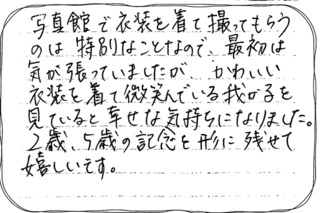 写真館で衣装を着て撮ってもらう
のは特別なことなので、最初は
気が張っていましたが、かわいい
衣装を着て微笑んでいる我が子を
見ていると幸せな気持ちになりました。
2歳、5歳の記念を形に残せて
嬉しいです。